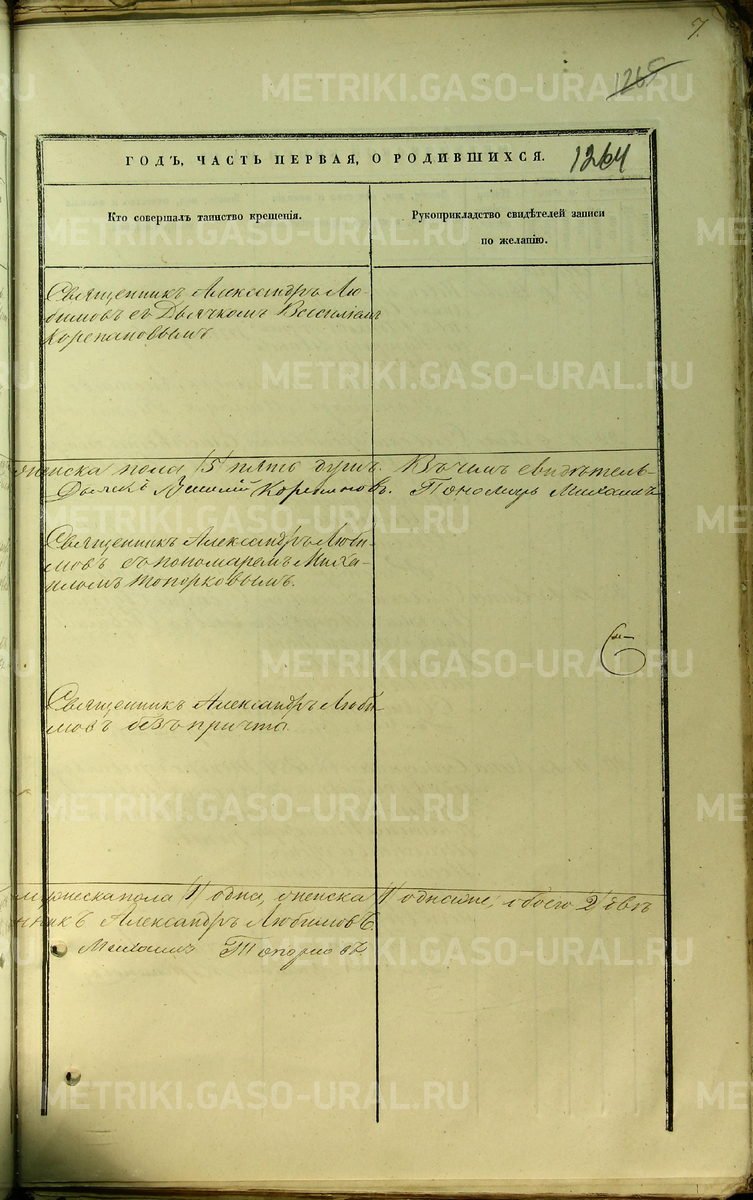 7.
1265
ГОДЪ, ЧАСТЬ ПЕРВАЯ, О РОДИВШИХСЯ. 1264
Кто совершалъ таинство крещенія.
Рукоприкладство свидѣтелей записи
по желанію.
Священникъ Александръ Лю-
бимовъ съ Дьячкомъ Василіемъ
Корепановымъ
женска пола /5/ пять душъ. Въ чемъ свидѣтель-
Дьячекъ Василій Корепановъ. Пономарь Михаилъ
Священникъ Александръ Люби-
мовъ съ пономаремъ Миха-
иломъ Топорковымъ.
6
Священникъ Александръ Люби-
мовъ безъ причта.
мужеска пола /1/ одна, женска /1/ одна же, обоего 2 двѣ
Александръ Любимовъ
Михаилъ
METRIKI.GASO-URAL.RU